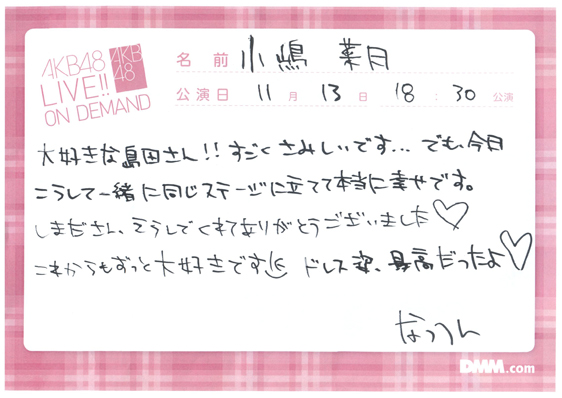 AKB48
LIVE!!
ON DEMAND
AKB
48
名前 小嶋 菜月
公演日 11月 13日 18:30 公演
大好きな島田さん!!すごくさみしいです...でも、今日
こうして一緒に同じステージに立てて本当に幸せです。
しまださん、そうしてくれてありがとうございました♡
これからもずっと大好きです ドレス姿、最高だったよ♡
なっつん
DMM.com